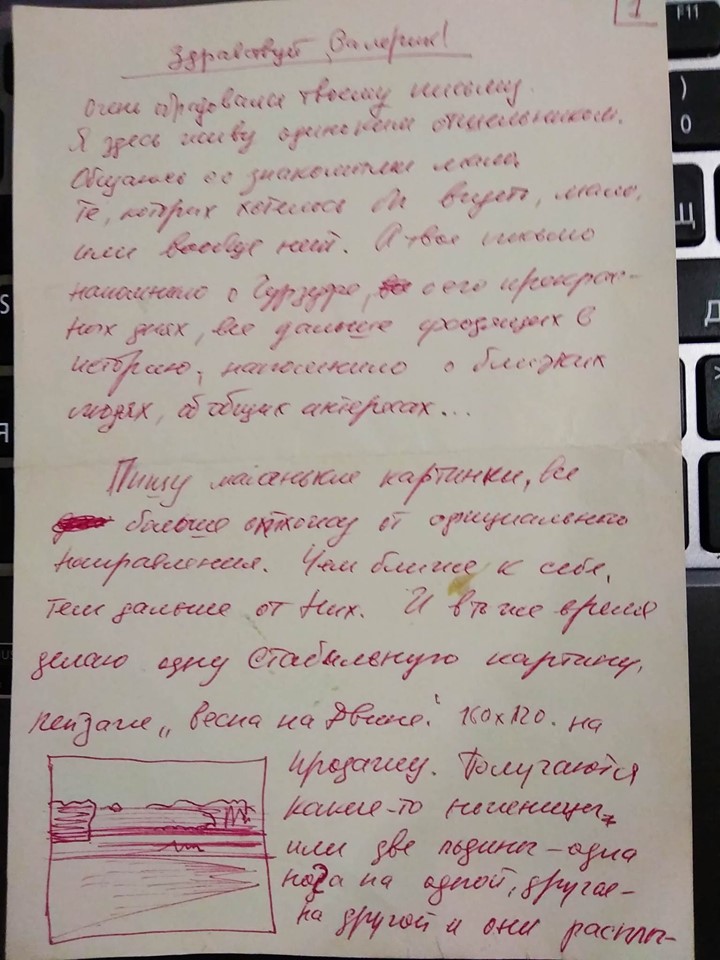 1
Здравствуй, Валерик!
Очень обрадовался твоему письму.
Я здесь живу одиноким отшельником.
Общаюсь со знакомыми мало.
Те, которых хотелось бы видеть, мало,
или вообще нет. А твоё письмо
напомнило о Гурзуфе, о его прекрас-
ных днях, все дальше уходящих в
историю, напомнило о близких
людях, об общих интересах...
Пишу маленькие картинки, все
больше отхожу от официального
направления. Чем ближе к себе,
тем дальше от них. И в то же время
делаю одну стабильную картину,
пейзаж „весна на Двине" 160х120. на
продажу. Получаются
какие-то ножницы,
или две льдины – одна
нога на одной, другая –
на другой и они расплы-
F11
)
0
Щ
Д
S
Я